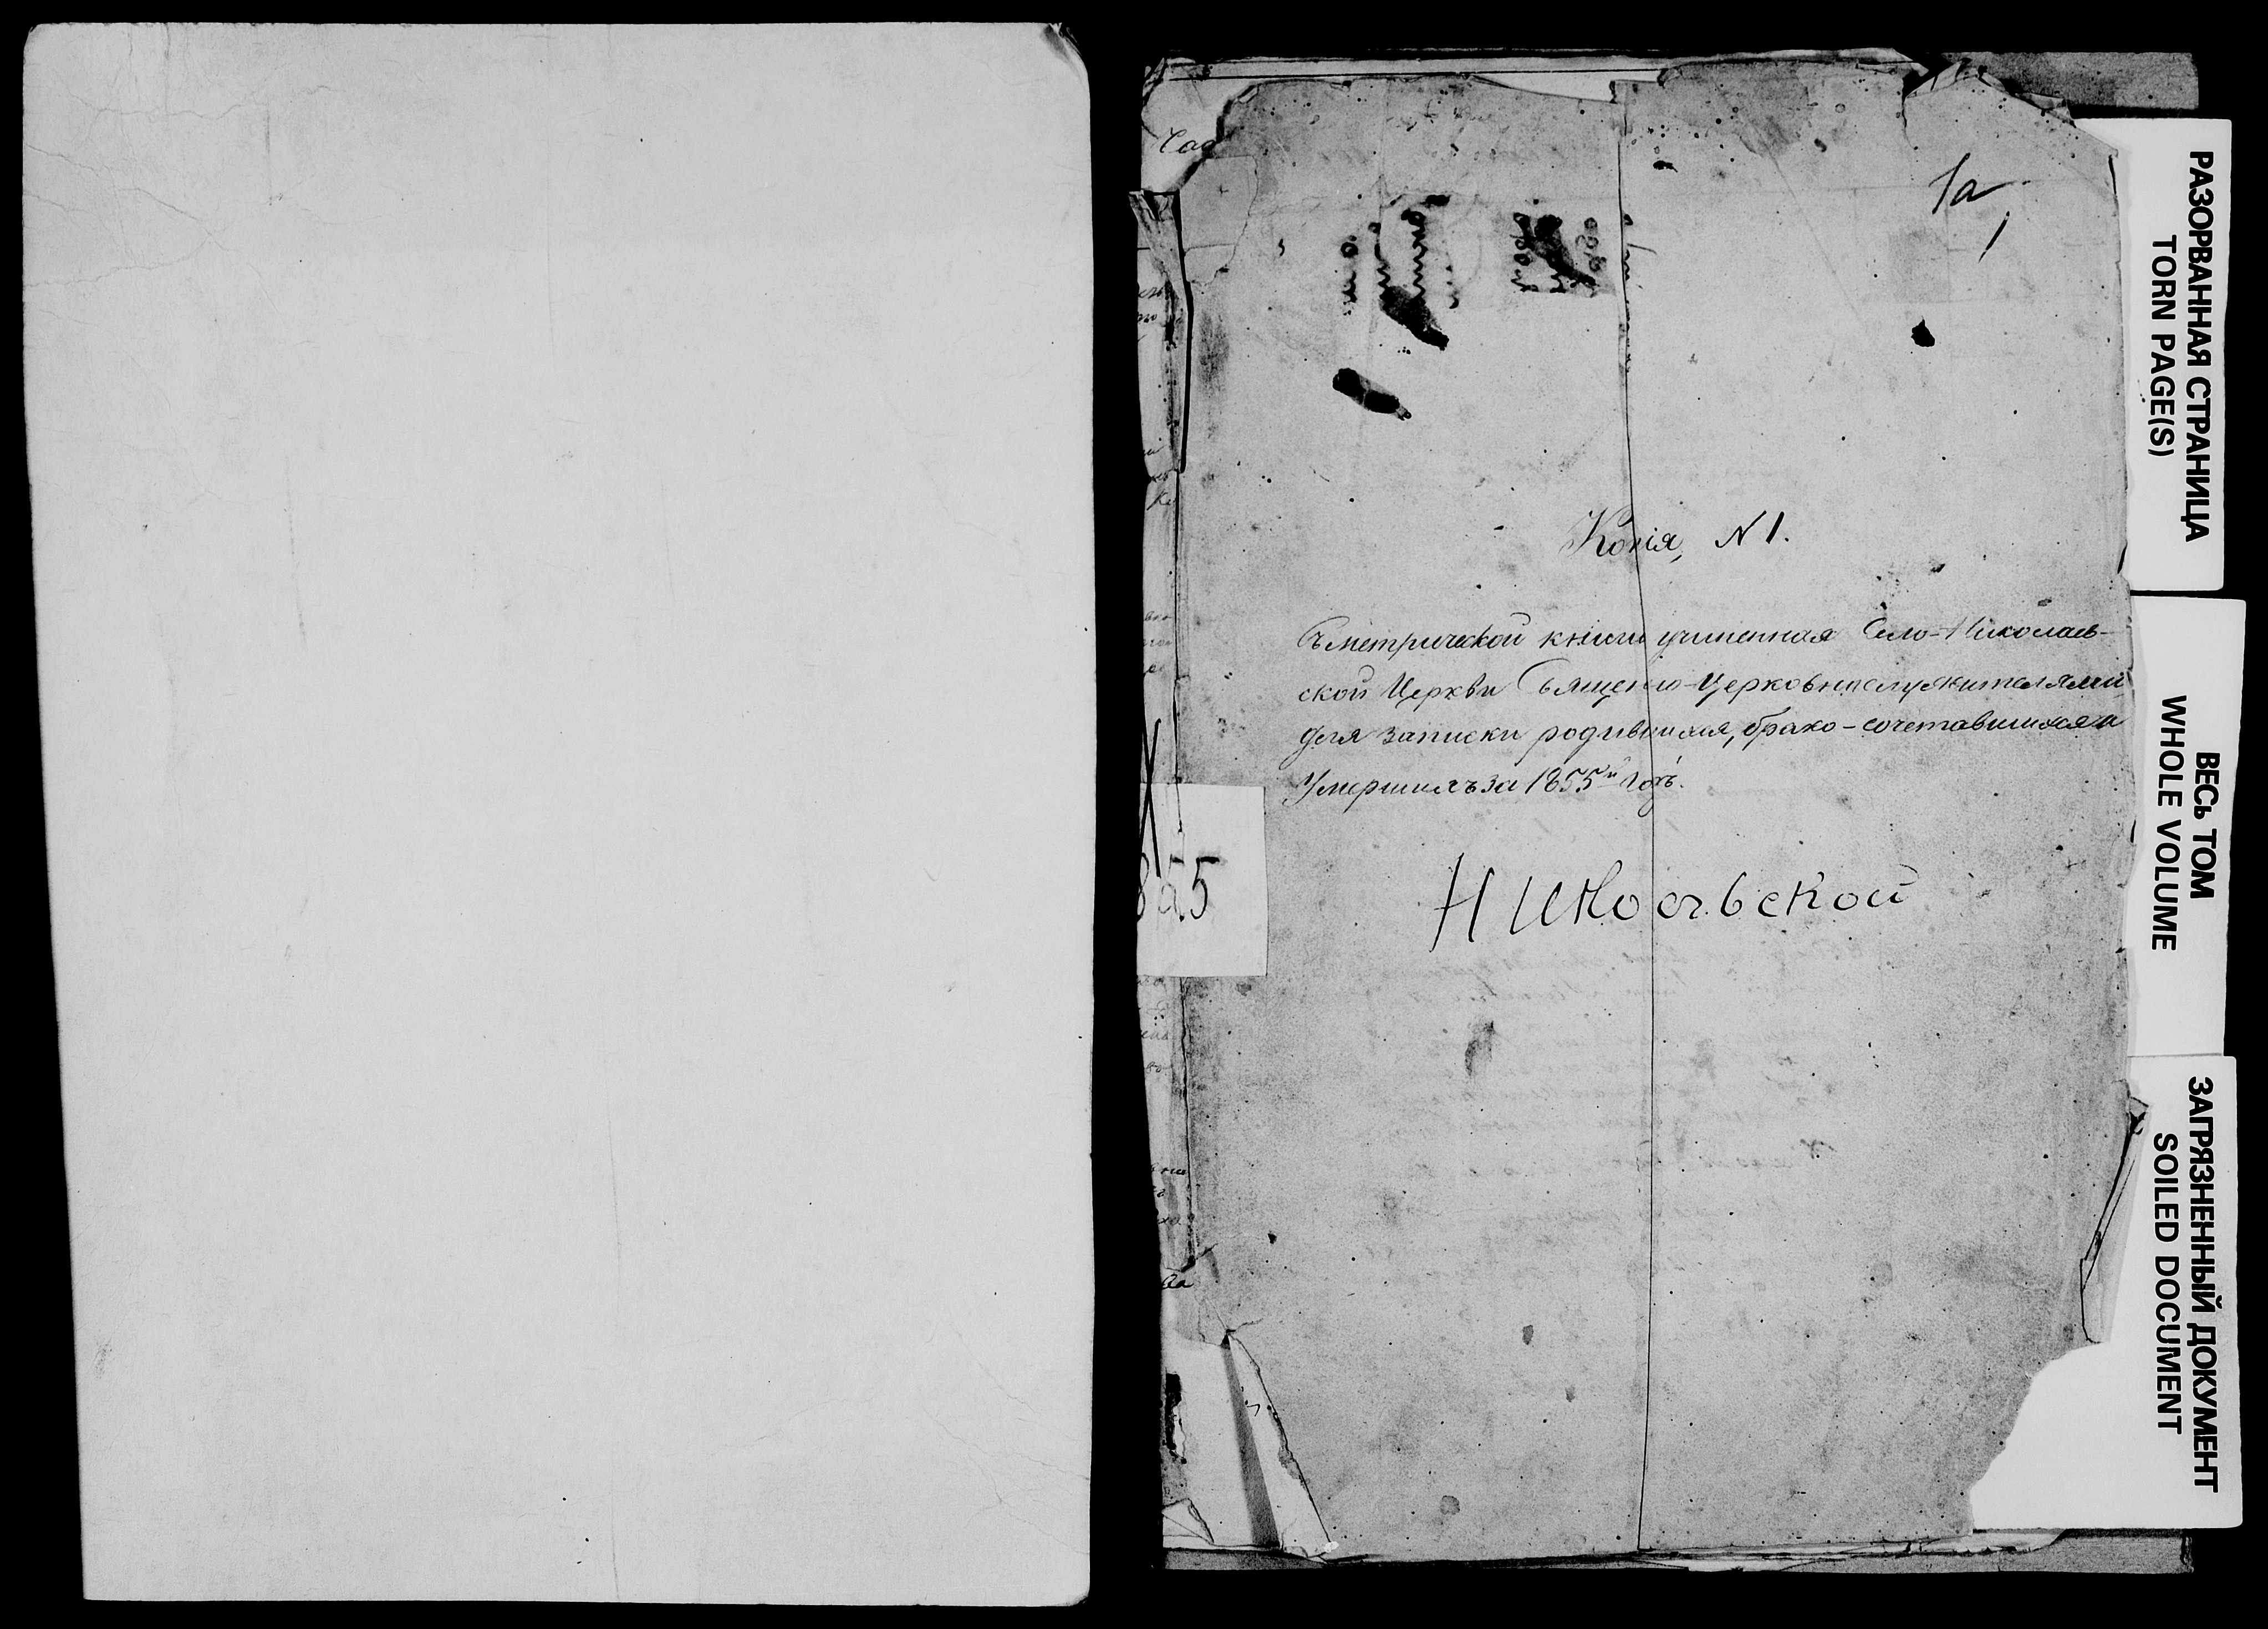 1а
1
Копія, N 1.
Съ метрической книги учиненная Село-Николаев-
ской Церкви Священно-Церковнослужителями
для записки родившихся, брако-сочетавшихся и
Умершихъ за 1855й годъ.
855
РАЗОРВАННАЯ СТРАНИЦА
TORN PAGE(S)
ВЕСЬ ТОМ
WHOLE VOLUME
ЗАГРЯЗНЕННЫЙ ДОКУМЕНТ
SOILED DOCUMENT